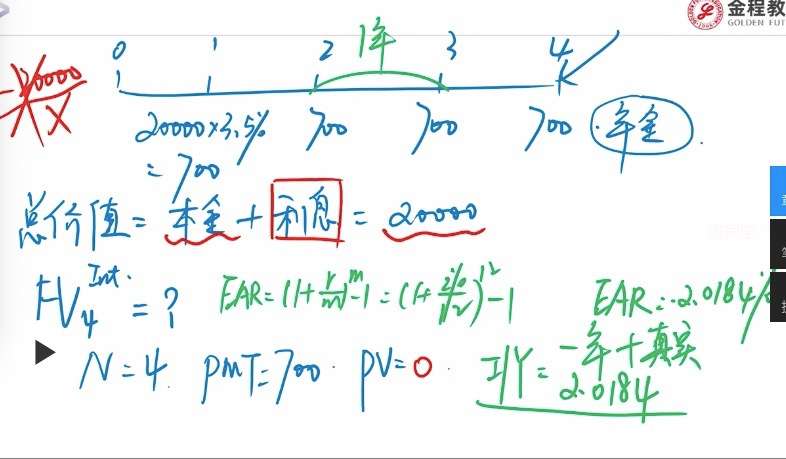 金程教
GOLDEN FUT
1年
0 1 2 3 4
-20000
X
20000×3.5% 700 700 700 年金
= 700
总价值 = 本金 + 利息 = 20000
FV₄ Int. = ?
EAR = (1+r/m)^m - 1 = (1+2%/12)^12 - 1
EAR = 2.0184%
N = 4 PMT = 700 PV = 0 I/Y = 一年十真实
2.0184